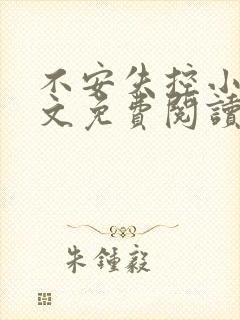 不安失控小
文免費閱讀
朱鍾毅